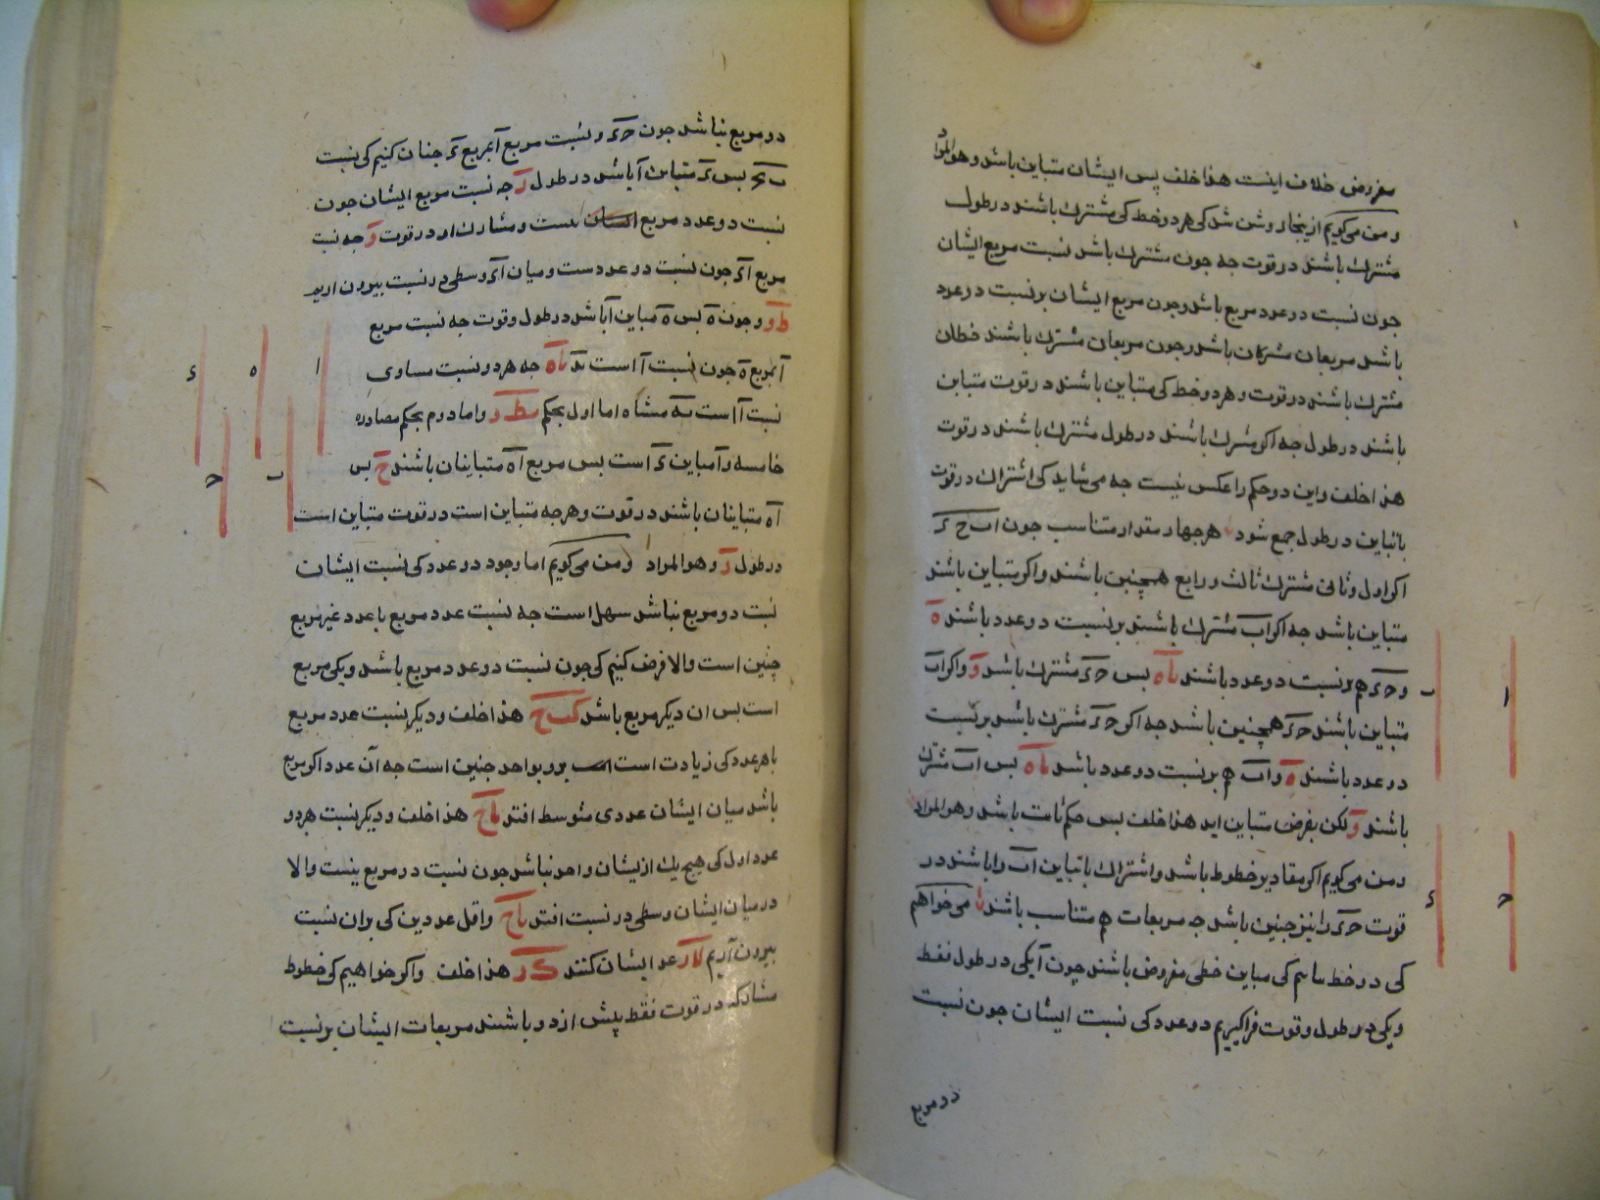 مفروض خلاف اینست هذا خلف پس ایشان متباین باشد وهو المراد
ومن می کویم ازینجا روشن شد کی هر دو خط کی مشترك باشند در طول
مشترك باشند در قوت جه جون مشترك باشد نسبت مربع ایشان
جون نسبت دو عدد مربع باشد وجون مربع ایشان بر نسبت دو عدد
باشد مربعان مشترکان باشد وجون مربعان مشترك باشند خطان
مشترك باشند در قوت وهر دو خط کی متباین باشند در قوت متباین
باشند در طول جه اکر مشترك باشند در طول مشترك باشند در قوت
هذا خلف واین دو حکم را عکس نیست جه می شاید کی اشتراك در قوت
با تباین در طول جمع شود هر جهار مقدار متناسب جون ا ب ح ء
اکر اول وثانی مشترك ثالث ورابع همچنین باشند واکر متباین باشند
متباین باشد جه اکر اب مشترك باشند بر نسبت دو عدد باشند ه
و حء هم بر نسبت دو عدد باشند ىاه بس حء مشترك باشد و واکر اب
متباین باشند حء همچنین باشد جه اکر حء مشترك باشد بر نسبت
دو عدد باشند ه و اب هم بر نسبت دو عدد باشد ىاه بس اب مشترك
باشند و لکن بفرض متباین اید هذا خلف بس حکم ثابت باشد وهو المراد
ومن می کویم اکر مقادیر خطوط باشد واشتراك با تباین اب را باشند در
قوت حء را نیز جنین باشد جه مربعات هم متناسب باشند می خواهم
کی دو خط بیابیم کی مباین خطی مفروض باشند چون آ یکی در طول فقط
ویکی در طول وقوت فراکیریم دو عدد کی نسبت ایشان جون نسبت
دو مربع
ا
ب
ح
ء
دو مربع نباشد جون حء و نسبت مربع آ بمربع ء جنان کنیم کی نسبت
بح بس ء متباین آ باشد در طول ز جه نسبت مربع ایشان جون
نسبت دو عدد مربع نیست ومشارك او در قوت و جه نسبت
مربع آء جون نسبت دو عددست ومیان آء وسطی در نسبت بیرون اریم
ط و وجون ه بس ه مباین آ باشد در طول وقوت جه نسبت مربع
آ بمربع ه جون نسبت آ است بء ىاه جه هر دو نسبت مساوی
نسبت آ است به مثناه اما اول بحکم مط و واما دوم بحکم مصادره
خامسه و آ مباین ء است بس مربع آه متباینان باشند ح بس
آه متباینان باشند در قوت وهرجه متباین است در قوت متباین است
در طول ز وهو المراد ومن می کویم اما وجود دو عدد کی نسبت ایشان
نسبت دو مربع نباشد سهل است جه نسبت عدد مربع با عدد غیر مربع
چنین است والا فرض کنیم کی جون نسبت دو عدد مربع باشد ویکی مربع
است بس ان دیکر مربع باشد کب ح هذا خلف ودیکر نسبت عدد مربع
با هر عدد کی زیادت است برو بواحد جنین است جه آن عدد اکر مربع
باشد میان ایشان عددی متوسط افتد ىاح هذا خلف ودیکر نسبت هر دو
عدد اول کی هیچ یك از یشان واحد نباشد جون نسبت دو مربع نیست والا
در میان ایشان وسطی در نسبت افتد ىاح واقل عددین کی بر ان نسبت
بیرون آریم لا ز عد ایشان کنند ك ز هذا خلف واکر خواهیم کی خطوط
مشارکه در قوت فقط پیش از دو باشند مربعات ایشان بر نسبت
ا
ه
ء
ب
ح